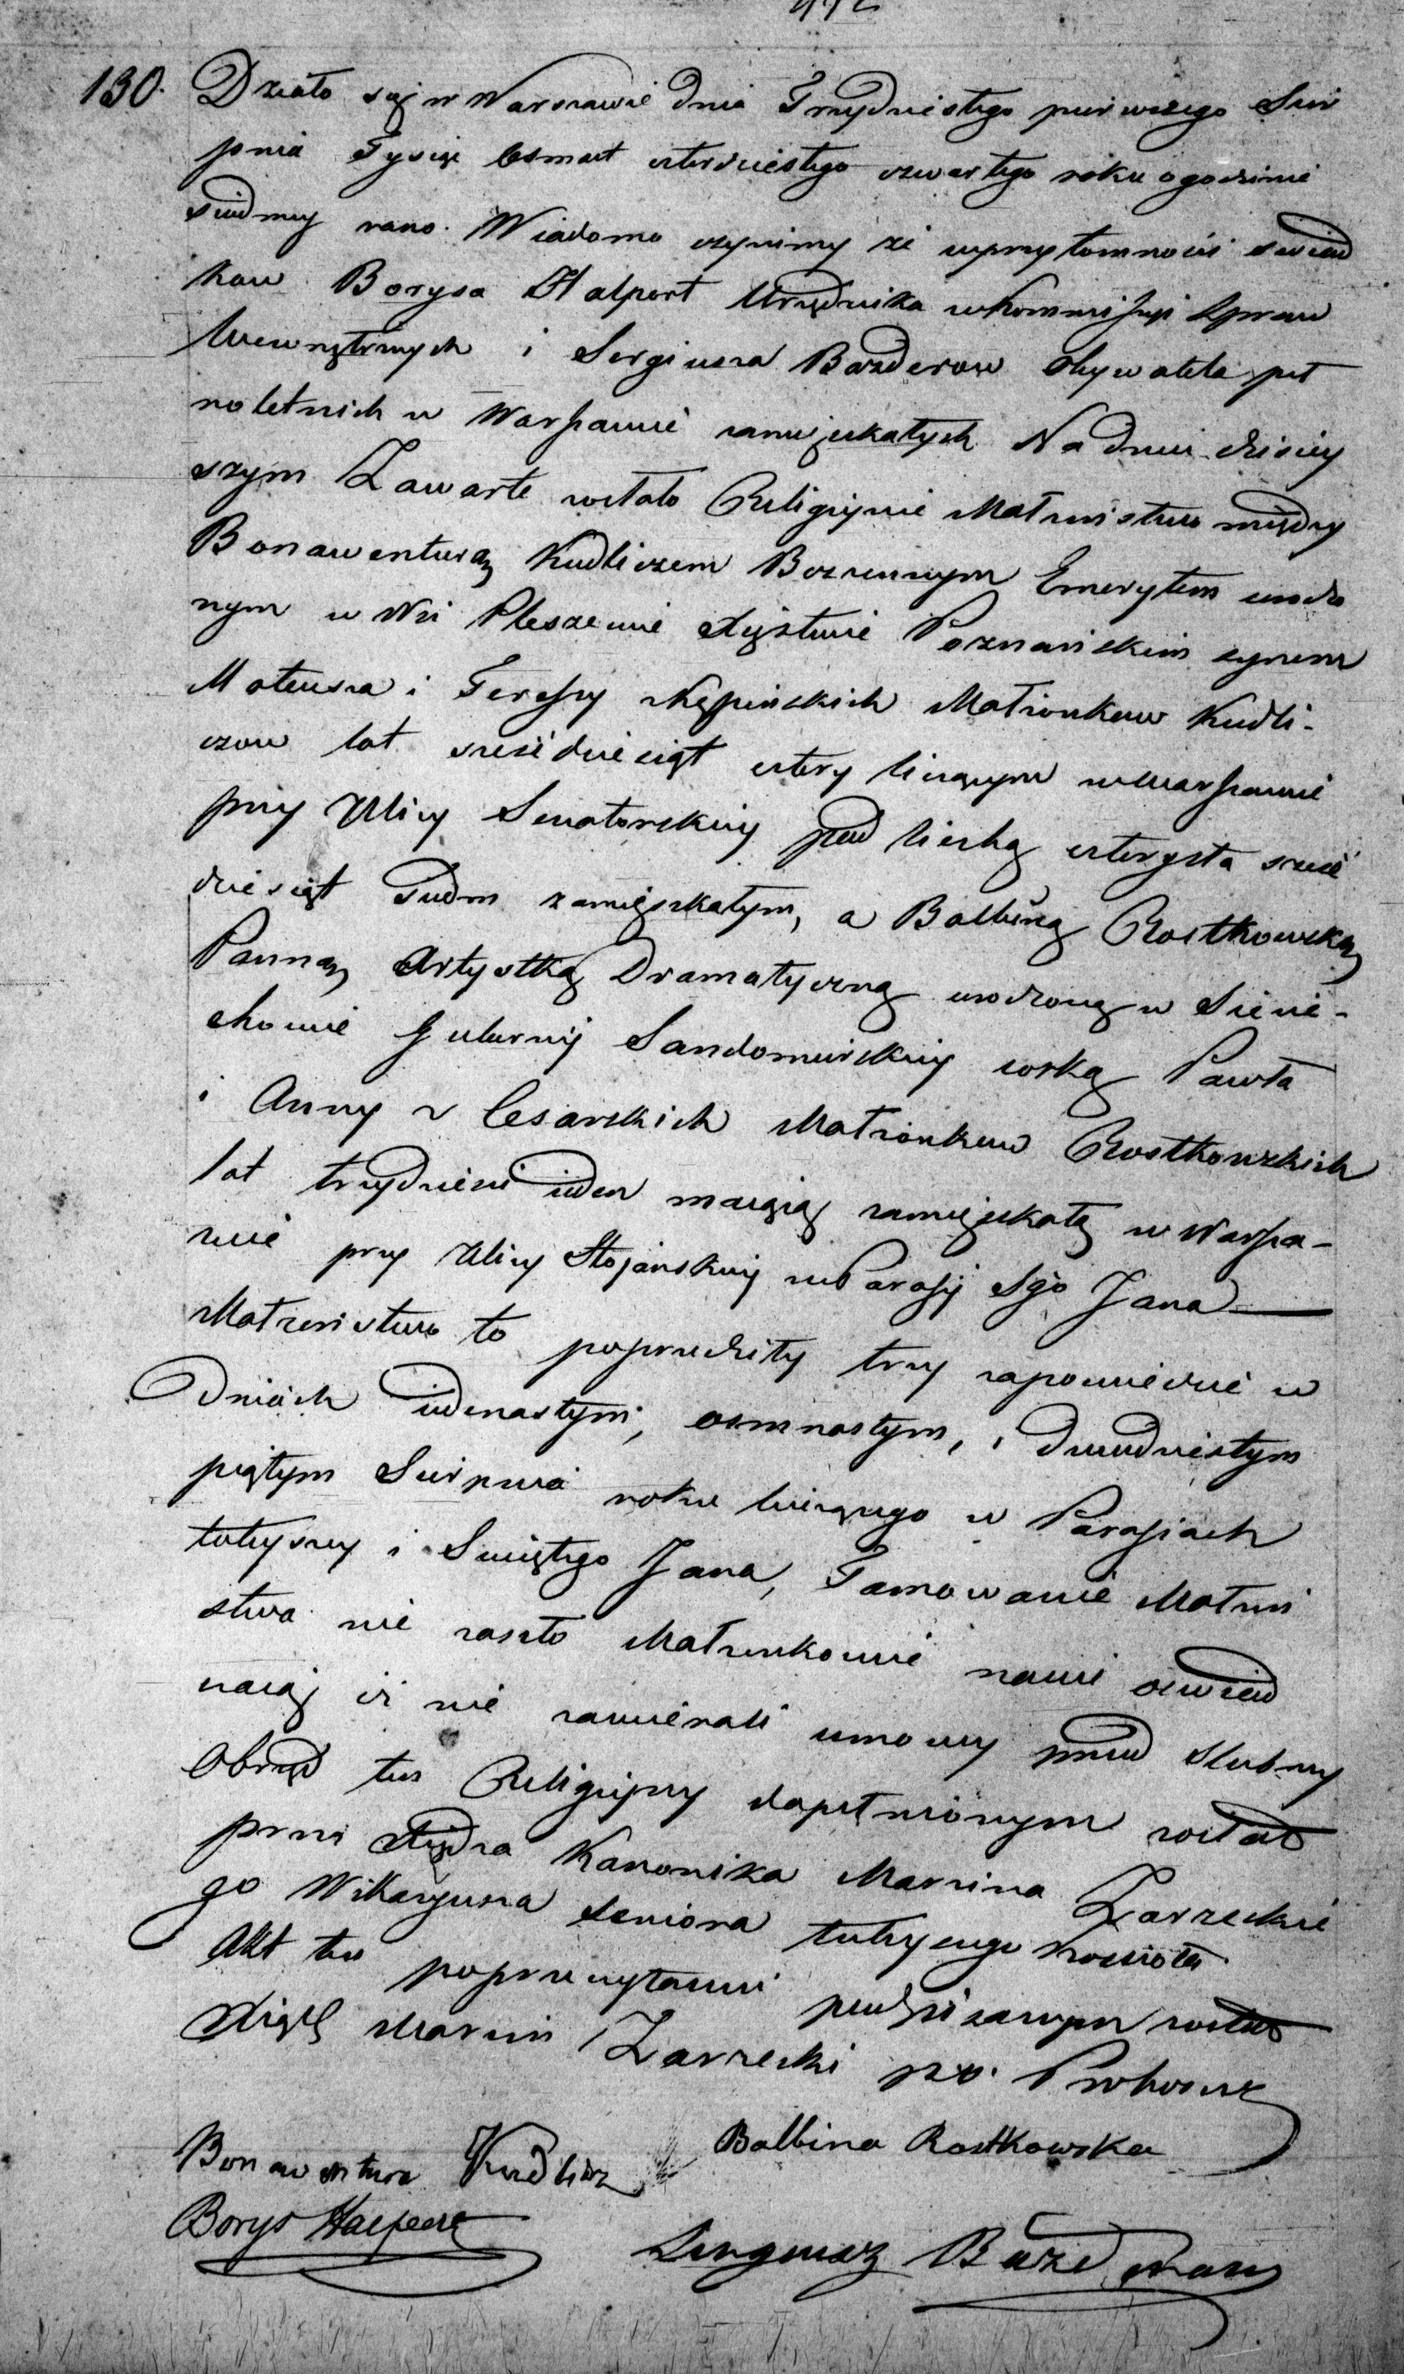 130. Działo się w Warszawie dnia Trzydziestego pierwszego Sier
pnia Tysiąc Osmset czterdziestego czwartego roku o godzinie
siodmey rano. Wiadomo czynimy że w przytomności swiad
kow Borysa Halpert Urzędnika w Kommissyi Spraw
Wewnętrznych i Sergiusza Bazderow Obywatela peł
noletnich w Warszawie zamieszkałych Na dniu dzisiey
szym Zawarte zostało Religijnie Małżeństwo między
Bonawenturą Kudliczem Bezżennym Emerytem urodzo
nym w Wsi Pleszewie Xięstwie Poznańskim synem
Mateusza i Teressy z Kępińskich Małżonkow Kudli-
czow lat sześćdziesiąt cztery liczącym w Warszawie
przy Ulicy Senatorskiey pod liczbą czterysta sześć
dziesiąt siedm zamieszkałym, a Balbiną Rostkowską
Panną Artystką Dramatyczną urodzoną w Siecie-
chowie Gubernij Sandomierskiey corką Pawła
i Anny z Cesarskich Małżonkow Rostkowskich
lat trzydzieści ieden maiącą zamieszkałą w Warsza-
wie przy Ulicy Sto Jańskiey w Parafij Sgo Jana
Małżeństwo to poprzedziły trzy zapowiedzie w
Dniach iedenastym, osmnastym, i dwudziestym
piątym Sierpnia roku bieżącego w Parafiach
tuteyszey i Swiętego Jana, Tamowanie Małżeń
stwa nie zaszło Małżonkowie nowi oswiad
czaią iż nie zawierali umowy przed slubney
Obrzęd ten Religijny dopełnionym został
przez Xiędza Kanonika Marcina Zarzeckie
go Wikaryusza Seniora tuteyszego Kościoła
Akt ten po przeczytaniu podpisanym został
Xiądz Marcin Zarzecki Proboszcz
Bonawentura Kudlicz Balbina Rostkowska
Borys Halpert Sergiusz